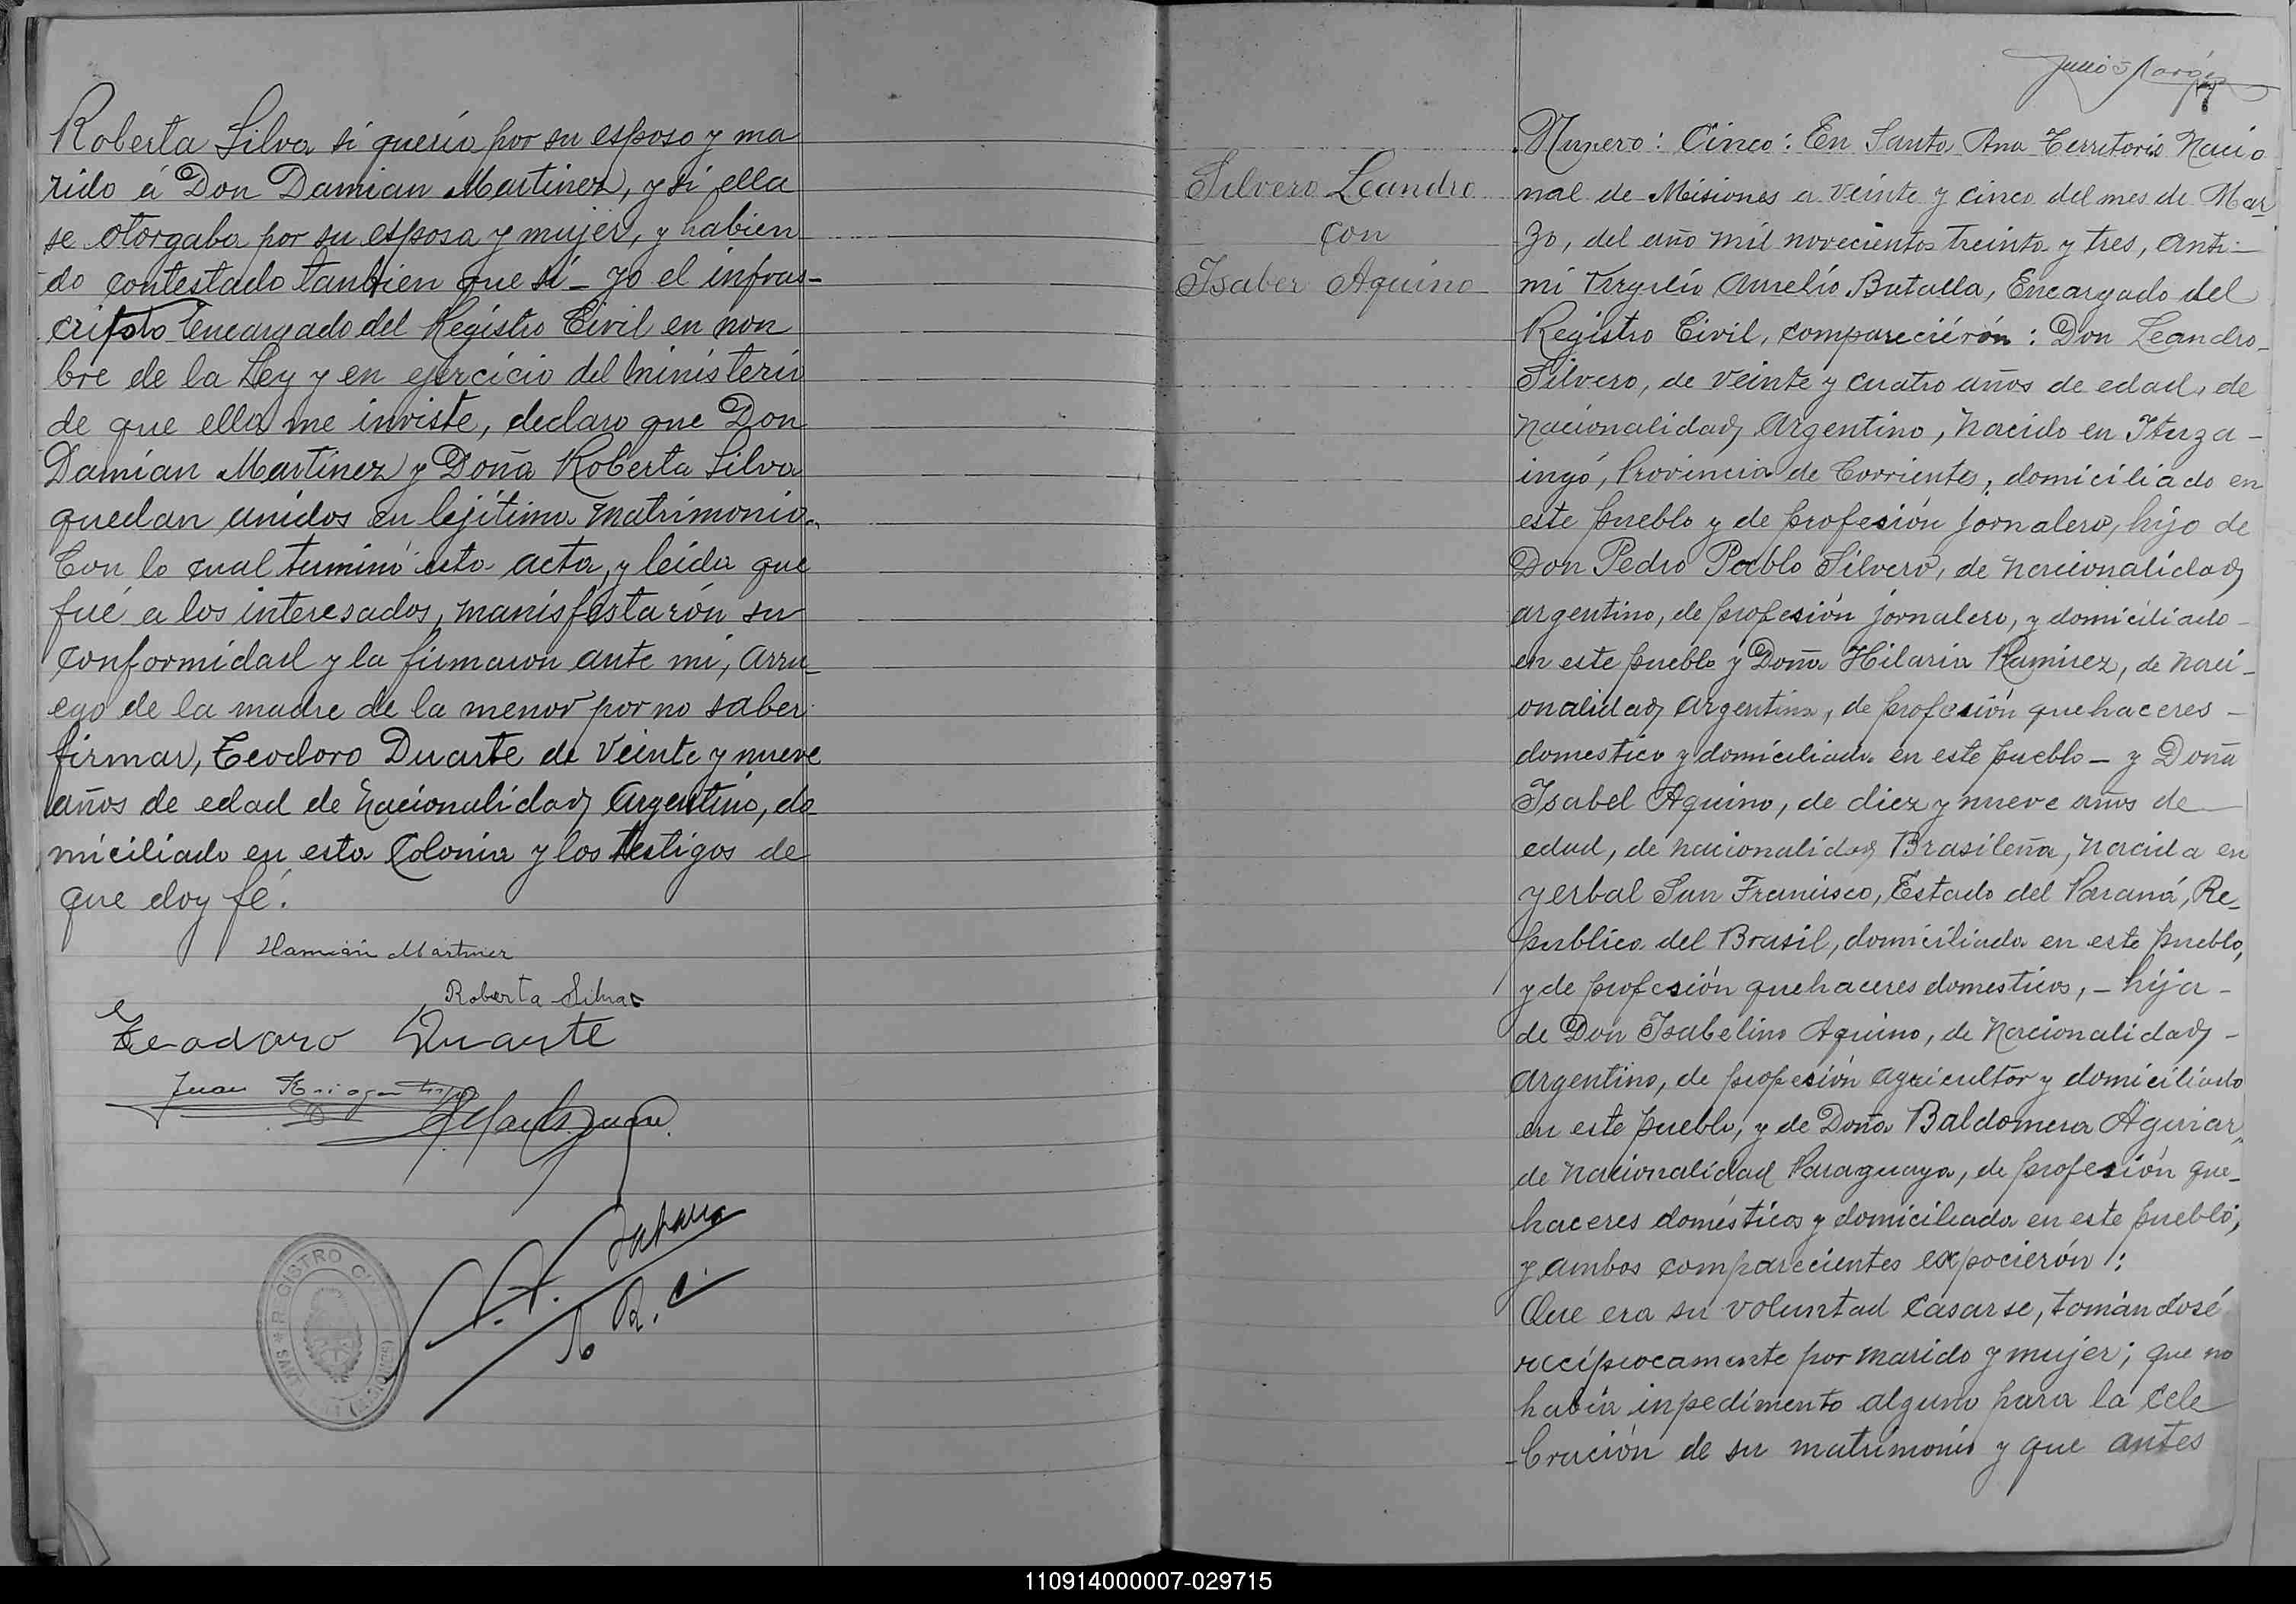 Roberta Silva si quería por su esposo y ma
rido á Don Damian Martinez, y si ella
se otorgaba por su esposa y mujer, y habien
do contestado tanbien que si – yo el infras-
cripto Encargado del Registro Civil en non
bre de la Ley y en ejercicio del ministerio
de que ella me inviste, declaro que Don
Damian Martinez y Doña Roberta Silva
quedan unidos en lejitimo matrimonio.
Con lo cual terminó esta acta, y leida que
fué a los interesados, manisfestarón su
conformidad y la firmaron ante mi, arru-
ego de la madre de la menor por no saber
firmar, Teodoro Duarte de veinte y nueve
años de edad de nacionalidad Argentino, do-
miciliado en esta Colonia y los testigos de
que doy fé.
Damián Martinez
Roberta Silva
Teodoro Duarte
Juan
REGISTRO CI
R. C.
Silvero Leandro
con
Isaber Aquino
Julio
Numero: Cinco: En Santa Ana Territorio Nacio
nal de Misiones a veinte y cinco del mes de Mar
zo, del año mil novecientos treinta y tres, Ante
mi Virgilio Aurelio Batalla, Encargado del
Registro Civil, comparecierón: Don Leandro
Silvero, de veinte y cuatro años de edad, de
nacionalidad Argentino, nacido en Ituza-
ingó, Provincia de Corrientes, domiciliado en
este pueblo y de profesión jornalero, hijo de
Don Pedro Pablo Silvero, de nacionalidad
argentino, de profesión jornalero, y domiciliado
en este pueblo y Doña Hilaria Ramirez, de naci-
onalidad argentina, de profesión quehaceres –
domestico y domiciliada en este pueblo – y Doña
Isabel Aquino, de diez y nueve años de
edad, de nacionalidad Brasileña, nacida en
yerbal San Francisco, Estado del Paraná, Re-
publica del Brasil, domiciliada en este pueblo,
y de profesión quehaceres domesticos, – hija –
de Don Isabelino Aquino, de nacionalidad –
Argentino, de profesión agricultor y domiciliado
en este pueblo, y de Doña Baldomera Aguiar,
de nacionalidad Paraguaya, de profesión que-
haceres domésticos y domiciliada en este pueblo,
y ambos comparecientes expocierón:
Que era su voluntad casarse, tomándosé
recíprocamente por marido y mujer; que no
había inpedimento alguno para la cele
bración de su matrimonio y que antes
110914000007-029715